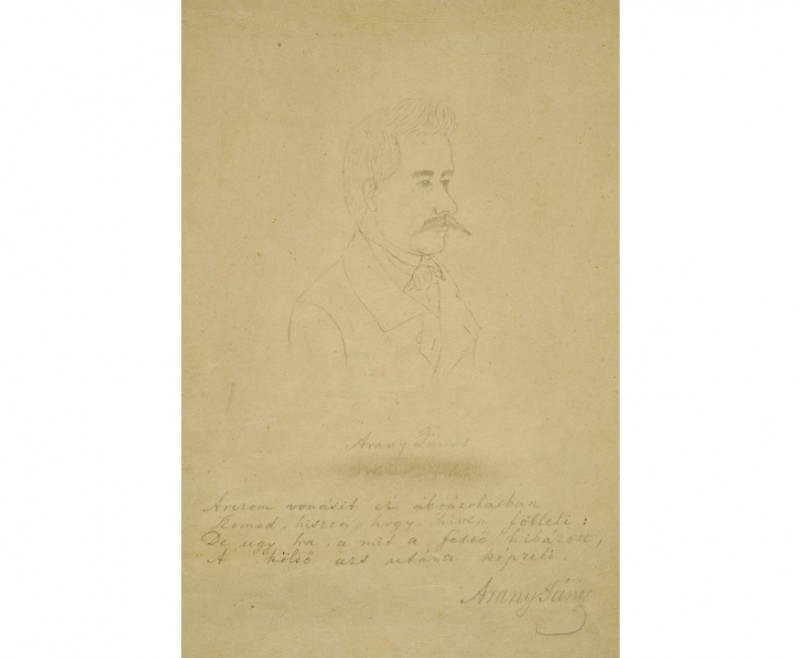 Arany János
Arczom vonásit ez ábrázolatban
Szemed, hiszen, hogy, híven fölleli:
De ugy ha, a mit a festő hibázott,
A költő azt utána képzeli.
Arany János